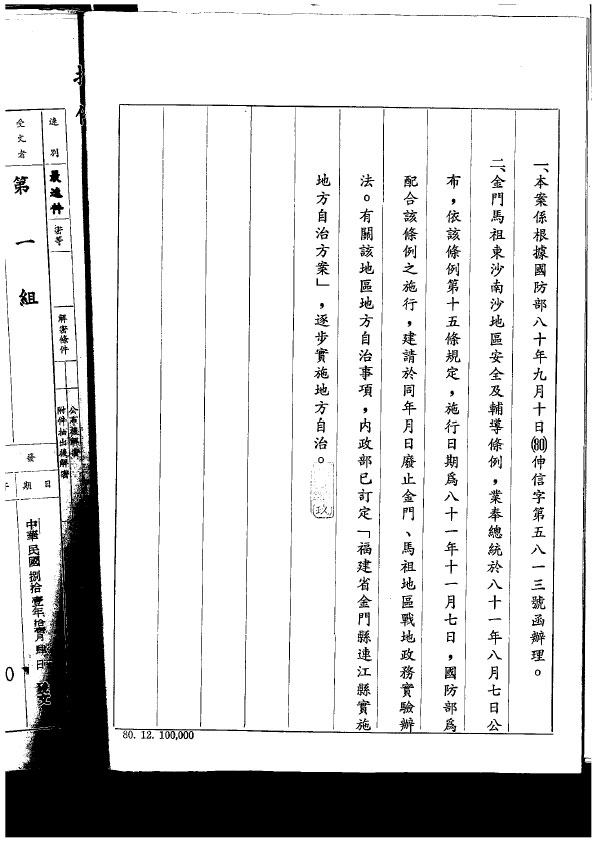 一、本案係根據國防部八十年九月十日(80)伸信字第五八一三號函辦理。
二、金門馬祖東沙南沙地區安全及輔導條例，業奉總統於八十一年八月七日公
布，依該條例第十五條規定，施行日期為八十一年十一月七日，國防部為
配合該條例之施行，建請於同年月日廢止金門、馬祖地區戰地政務實驗辦
法。有關該地區地方自治事項，內政部已訂定「福建省金門縣連江縣實施
地方自治方案」，逐步實施地方自治。
玫
80. 12. 100,000
速別
最速件
密等
解密條件
公布後解密
附件抽出後解密
受文者
第一組
發
日期
中華民國捌拾壹年拾壹月肆日
發文